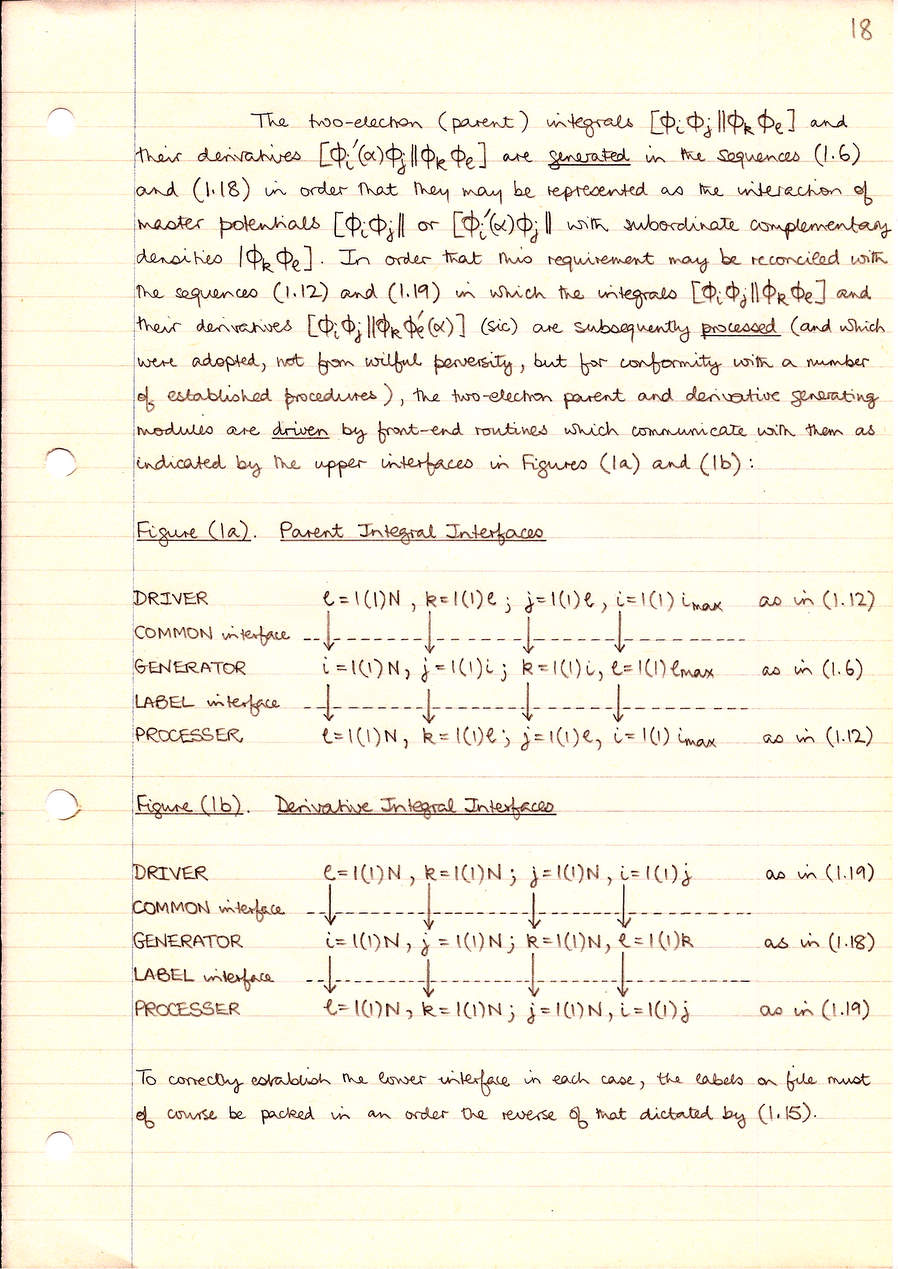 18
The two-electron (parent) integrals [ΦᵢΦⱼ||ΦₖΦₗ] and
their derivatives [Φᵢ′(α)Φⱼ||ΦₖΦₗ] are generated in the sequences (1.6)
and (1.18) in order that they may be represented as the interaction of
master potentials [ΦᵢΦⱼ|| or [Φᵢ′(α)Φⱼ|| with subordinate complementary
densities |ΦₖΦₗ]. In order that this requirement may be reconciled with
the sequences (1.12) and (1.19) in which the integrals [ΦᵢΦⱼ||ΦₖΦₗ] and
their derivatives [ΦᵢΦⱼ||ΦₖΦₗ′(α)] (sic) are subsequently processed (and which
were adopted, not from wilful perversity, but for conformity with a number
of established procedures), the two-electron parent and derivative generating
modules are driven by front-end routines which communicate with them as
indicated by the upper interfaces in Figures (1a) and (1b):
Figure (1a). Parent Integral Interfaces
DRIVER ℓ=1(1)N, k=1(1)ℓ; j=1(1)ℓ, i=1(1) iₘₐₓ as in (1.12)
COMMON interface
GENERATOR i=1(1)N, j=1(1)i; k=1(1)i, ℓ=1(1)ℓₘₐₓ as in (1.6)
LABEL interface
PROCESSER ℓ=1(1)N, k=1(1)ℓ; j=1(1)ℓ, i=1(1) iₘₐₓ as in (1.12)
Figure (1b). Derivative Integral Interfaces
DRIVER ℓ=1(1)N, k=1(1)N; j=1(1)N, i=1(1)j as in (1.19)
COMMON interface
GENERATOR i=1(1)N, j=1(1)N; k=1(1)N, ℓ=1(1)k as in (1.18)
LABEL interface
PROCESSER ℓ=1(1)N, k=1(1)N; j=1(1)N, i=1(1)j as in (1.19)
To correctly establish the lower interface in each case, the labels on file must
of course be packed in an order the reverse of that dictated by (1.15).